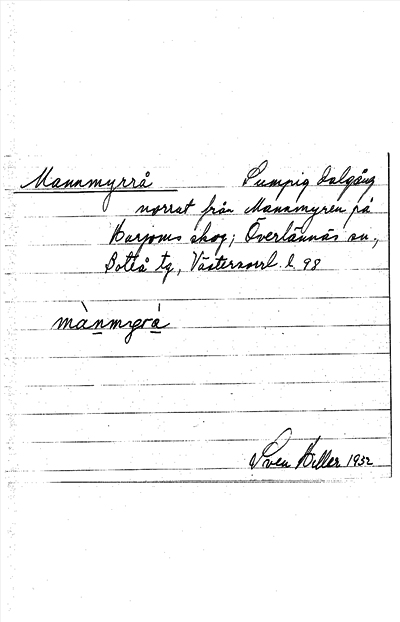 Mannmyrrå Sumpig dalgång
norrut från Mannmyren på
skog; Överlännäs sn.,
Bollå tg, Västernorrl. l. 98
Sven Hiller 1932